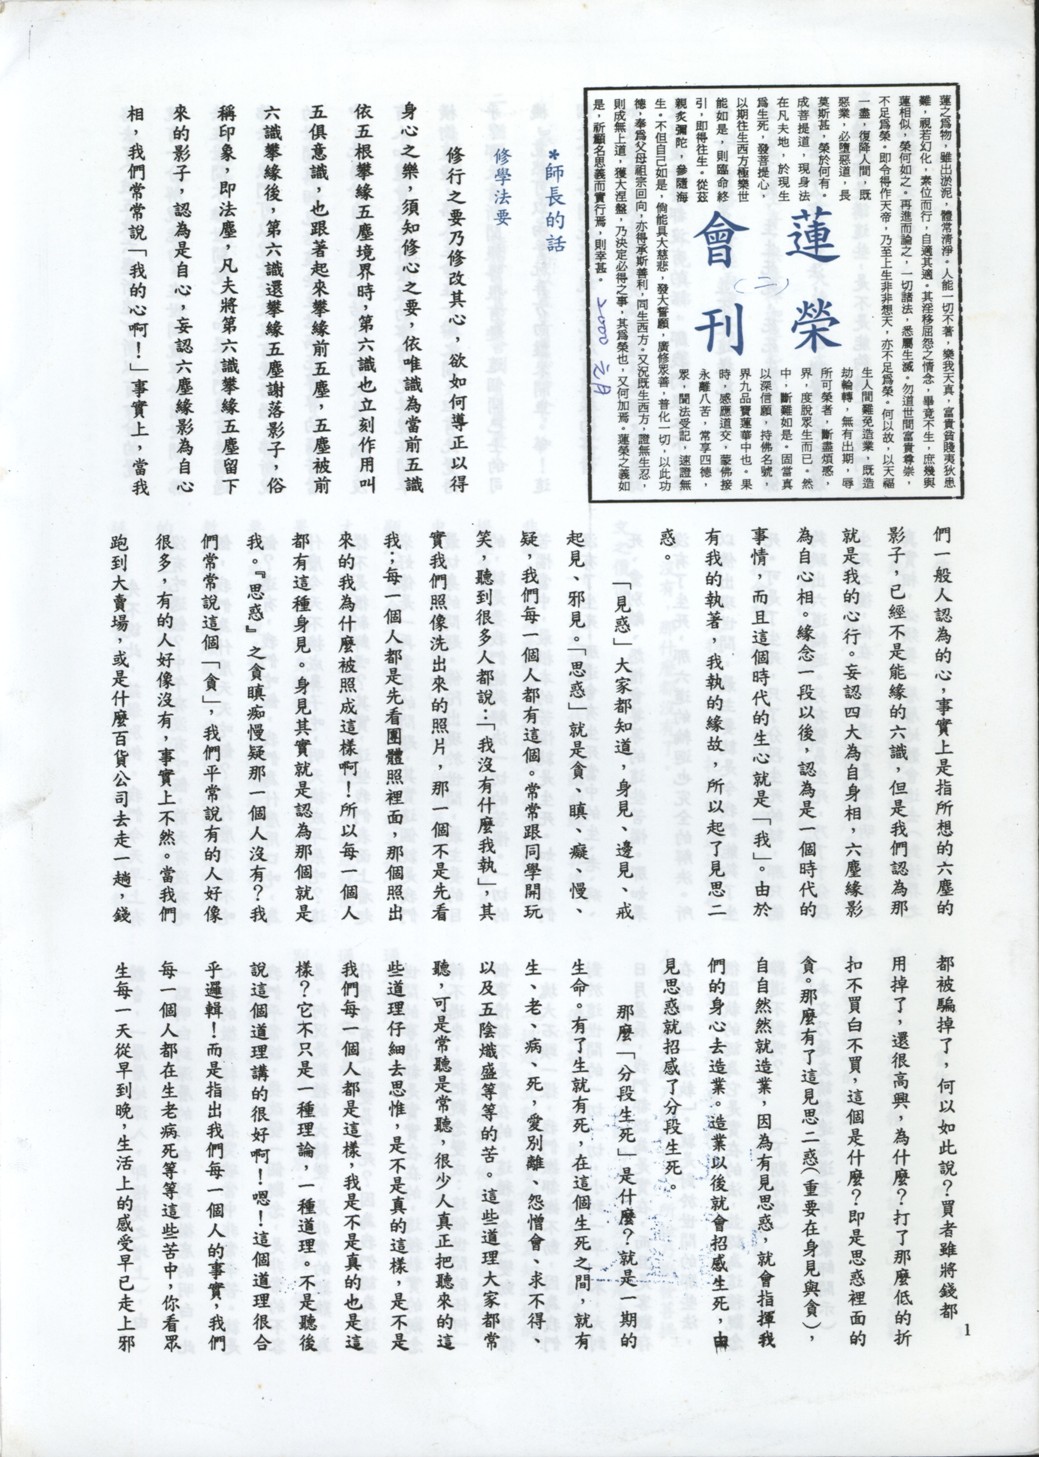 蓮榮會刊
(二)
蓮之為物，雖出淤泥，體常清淨。人能一切不著，樂我天真，富貴貧賤夷狄患
難，視若幻化，素位而行，自適其適。其淫移屈怨之情念，畢竟不生，庶幾與
蓮相似，榮何如之。再進而論之，一切諸法，悉屬生滅。勿道世間富貴尊崇，
不足為榮。即令得作天帝，乃至上生非非想天，亦不足為榮。何以故，以天福
一盡，復降人間，既
生人間難免造業，既造
惡業，必墮惡道，長
劫輪轉，無有出期，辱
莫斯甚，榮於何有。
所可榮者，斷盡煩惑，
成菩提道，現身法
界，度脫眾生而已。然
在凡夫地，於現生
中，斷難如是。固當真
為生死，發菩提心，
以深信願，持佛名號，
以期往生西方極樂世
界九品寶蓮華中也。果
能如是，則臨命終
時，感應道交，蒙佛接
引，即得往生。從茲
永離八苦，常享四德，
親炙彌陀，參隨海
眾，聞法受記，速證無
生。不但自己如是，倘能具大慈悲，發大誓願，廣修眾善，普化一切，以此功
德，奉為父母祖宗回向，亦得承斯善利，同生西方。又況既生西方，證無生忍，
則成無上道，獲大涅槃，乃決定必得之事，其為榮也，又何加焉。蓮榮之義如
是，祈顧名思義而實行焉，則幸甚。
2000 元月
*師長的話
修學法要
修行之要乃修改其心，欲如何導正以得
身心之樂，須知修心之要，依唯識為當前五識
依五根攀緣五塵境界時，第六識也立刻作用叫
五俱意識，也跟著起來攀緣前五塵，五塵被前
六識攀緣後，第六識還攀緣五塵謝落影子，俗
稱印象，即法塵，凡夫將第六識攀緣五塵留下
來的影子，認為是自心，妄認六塵緣影為自心
相，我們常常說「我的心啊！」事實上，當我
們一般人認為的心，事實上是指所想的六塵的
影子，已經不是能緣的六識，但是我們認為那
就是我的心行。妄認四大為自身相，六塵緣影
為自心相。緣念一段以後，認為是一個時代的
事情，而且這個時代的生心就是「我」。由於
有我的執著，我執的緣故，所以起了見思二
惑。
「見惑」大家都知道，身見、邊見、戒
起見、邪見。「思惑」就是貪、瞋、癡、慢、
疑，我們每一個人都有這個。常常跟同學開玩
笑，聽到很多人都說：「我沒有什麼我執」，其
實我們照像洗出來的照片，那一個不是先看
我；每一個人都是先看團體照裡面，那個照出
來的我為什麼被照成這樣啊！所以每一個人
都有這種身見。身見其實就是認為那個就是
我。『思惑』之貪瞋痴慢疑那一個人沒有？我
們常常說這個「貪」，我們平常說有的人好像
很多，有的人好像沒有，事實上不然。當我們
跑到大賣場，或是什麼百貨公司去走一趟，錢
都被騙掉了，何以如此說？買者雖將錢都
用掉了，還很高興，為什麼？打了那麼低的折
扣不買白不買，這個是什麼？即是思惑裡面的
貪。那麼有了這見思二惑（重要在身見與貪），
自自然然就造業，因為有見思惑，就會指揮我
們的身心去造業。造業以後就會招感生死，由
見思惑就招感了分段生死。
那麼「分段生死」是什麼？就是一期的
生命。有了生就有死，在這個生死之間，就有
生、老、病、死，愛別離、怨憎會、求不得、
以及五陰熾盛等等的苦。這些道理大家都常
聽，可是常聽是常聽，很少人真正把聽來的這
些道理仔細去思惟，是不是真的這樣，是不是
我們每一個人都是這樣，我是不是真的也是這
樣？它不只是一種理論，一種道理。不是聽後
說這個道理講的很好啊！嗯！這個道理很合
乎邏輯！而是指出我們每一個人的事實，我們
每一個人都在生老病死等等這些苦中，你看眾
生每一天從早到晚，生活上的感受早已走上邪
1